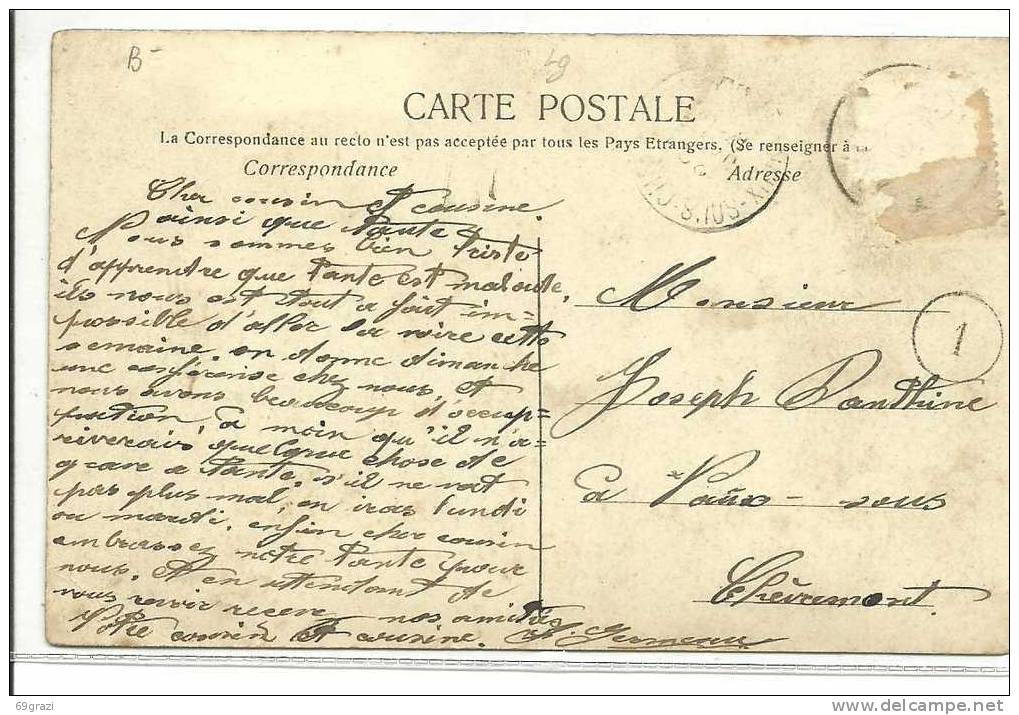 B-
49
CARTE POSTALE
La Correspondance au recto n'est pas acceptée par tous les Pays Etrangers. (Se renseigner à
Correspondance
Adresse
Cher cousin et cousine
ainsi que tante
Nous sommes bien triste
d'apprendre que tante est malade,
ils nous est tout a fait im=
possible d'aller la voire cette
semaine, on donne dimanche
une conférense chez nous, et
nous avons beaucoup d'occup=
pation, a moin qu'il n'a=
riverais quelque chose de
grave a tante, s'il ne vat
pas plus mal, on iras lundi
ou mardi, enfin cher cousin
embrassez notre tante pour
nous. Et en attendant de
vous revoir recevez nos amitiés
Votre cousin et cousine.
Monsieur
1
Joseph
a Vaux-sous
Chèvremont.
69grazi
delcampe.net